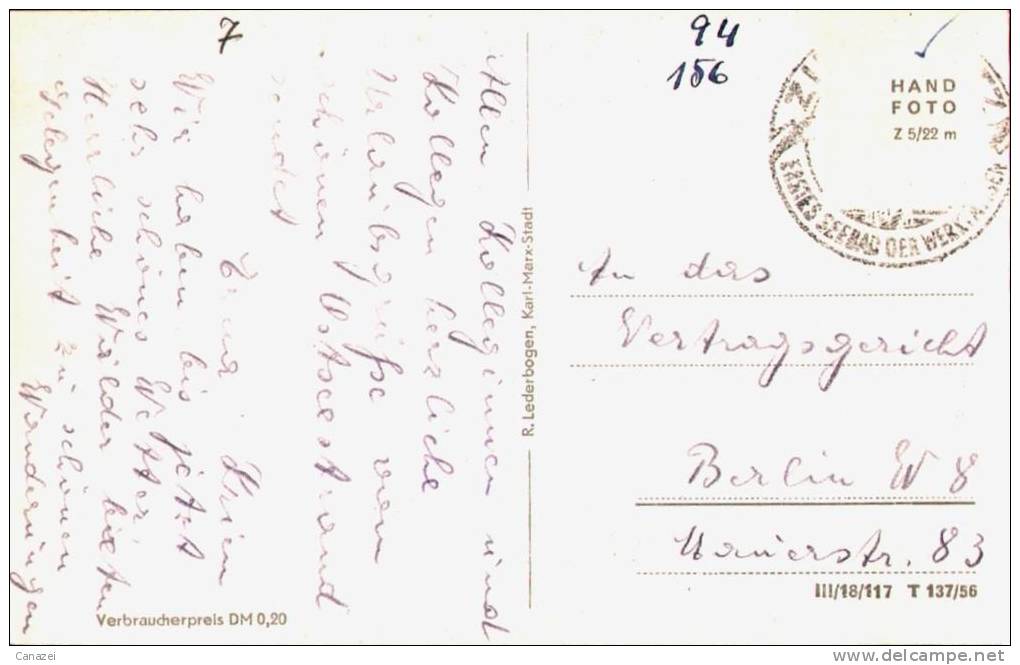 7
Allen Kolleginnen und
Kollegen herzliche
Urlaubsgrüße vom
schönen Ostseestrand
sendet
Erna
Wir haben bis jetzt
sehr schönes Wetter
Herrliche Wälder bieten
Gelegenheit zu schönen
Wanderungen
Verbraucherpreis DM 0,20
R. Lederbogen, Karl-Marx-Stadt
94
156
HAND
FOTO
Z 5/22 m
ERSTES SEEBAD DER
An das
Vertragsgericht
Berlin W 8
Mauerstr. 83
III/18/117 T 137/56
Canazei
http://www.delcampe.net